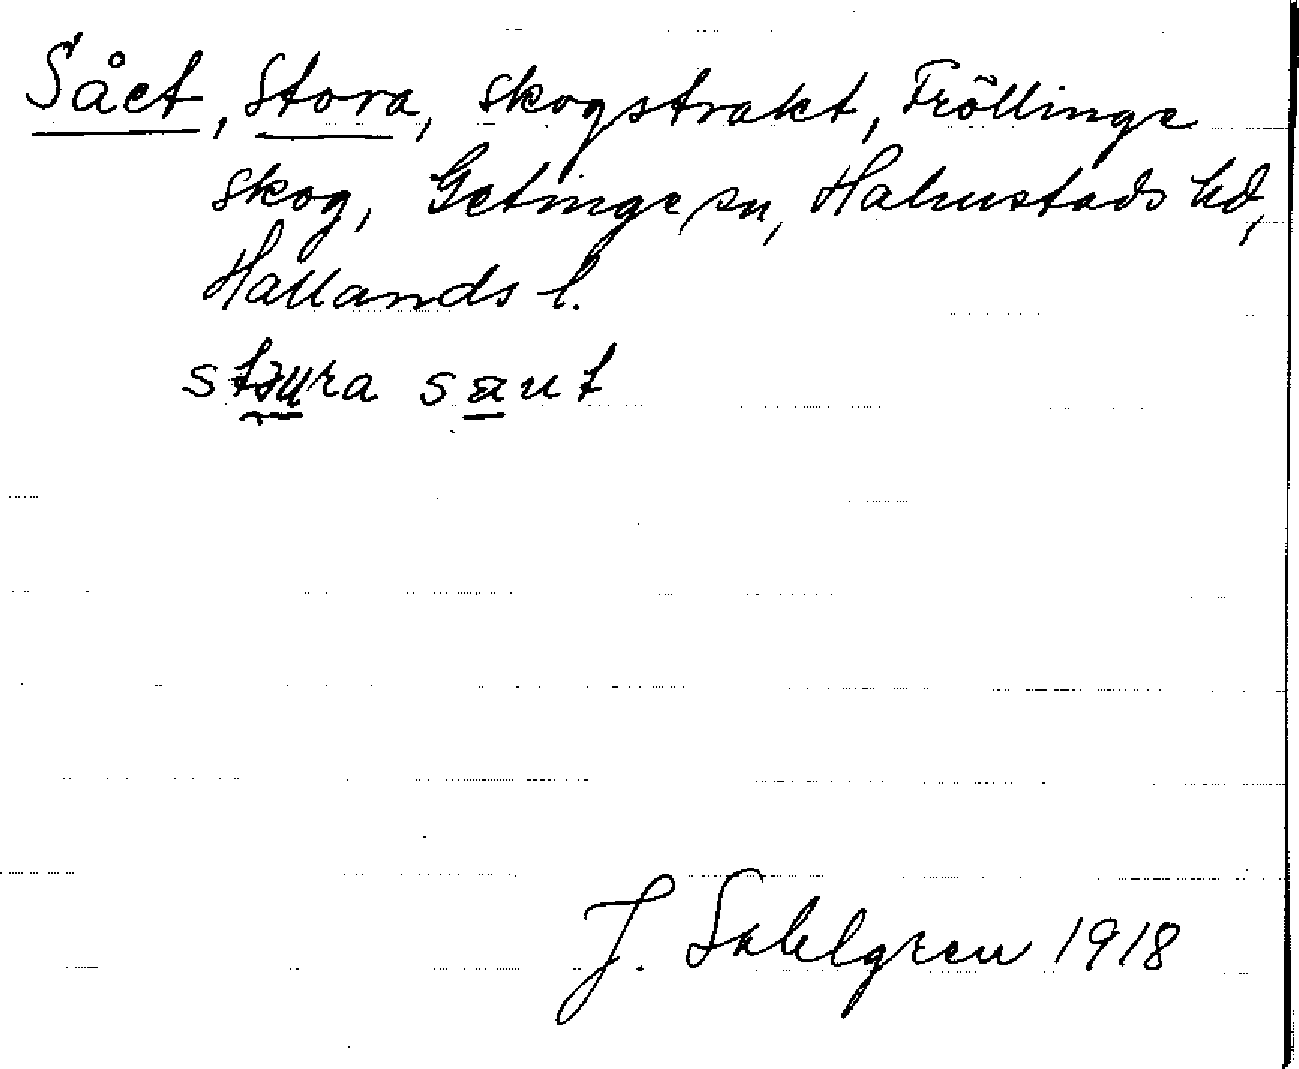 Sået, Stora, skogstrakt, Fröllinge
skog, Getinge sn, Halmstads hd,
Hallands l.
J. Sahlgren 1918